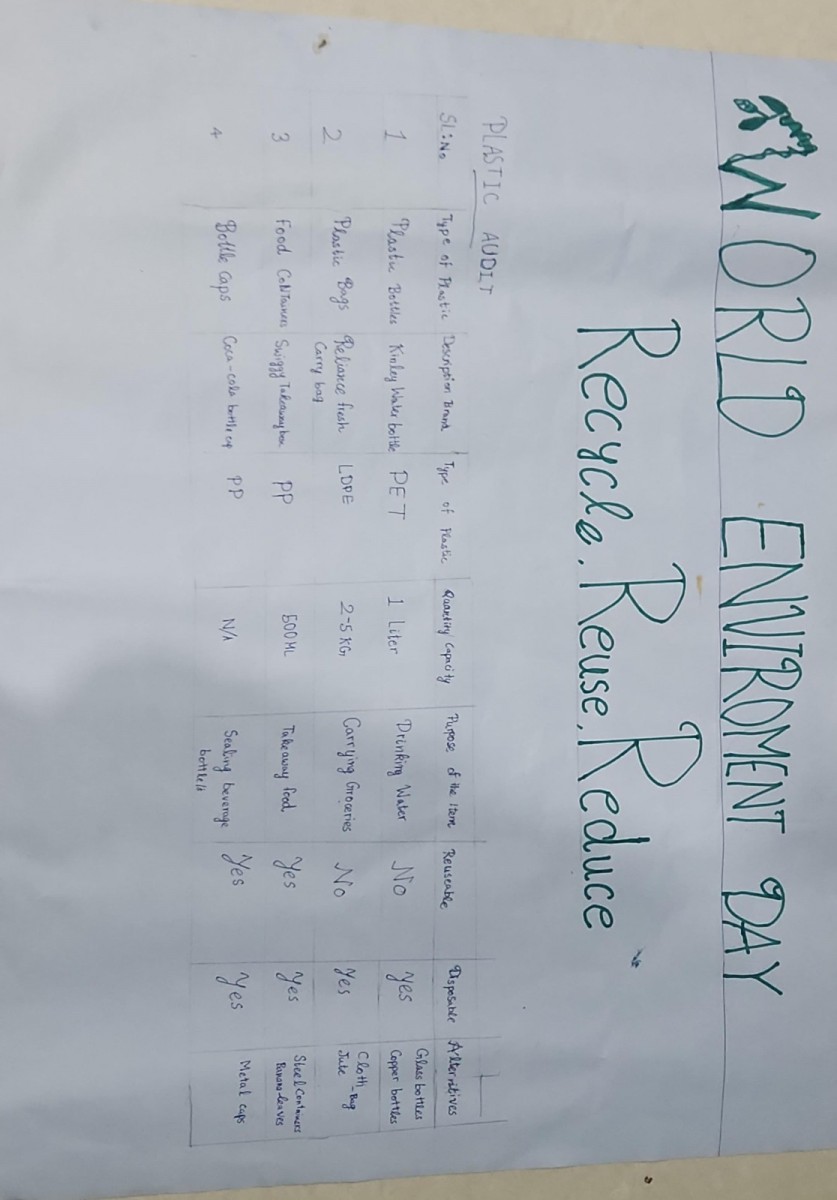 WORLD ENVIROMENT DAY
Recycle, Reuse, Reduce
PLASTIC AUDIT
SL:No Type of Plastic Description Brand Type of Plastic Quantity Capacity Pupose of the Item Reuseable Disposable Alternatives
1 Plastic Bottles Kinley Water bottle PET 1 Liter Drinking Water No Yes Glass bottles Copper bottles
2 Plastic Bags Reliance fresh Carry bag LDPE 2-5 KG Carrying Groceries No Yes Cloth-Bag Jute
3 Food Containers Swiggy Takeaway box PP 500ML Takeaway food Yes Yes Steel Containers Banana-leaves
4 Bottle caps Coca-cola bottle cap PP N/A Sealing beverage bottles Yes Yes Metal caps